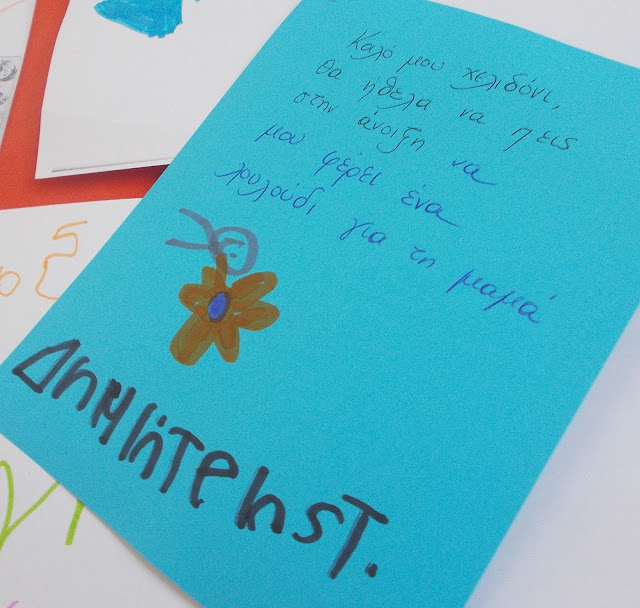 Καλό μου χελιδόνι,
θα ήθελα να πεις
στην άνοιξη να
μου φέρει ένα
λουλούδι για τη μαμά
ΔΗΜΉΤΡΗST.